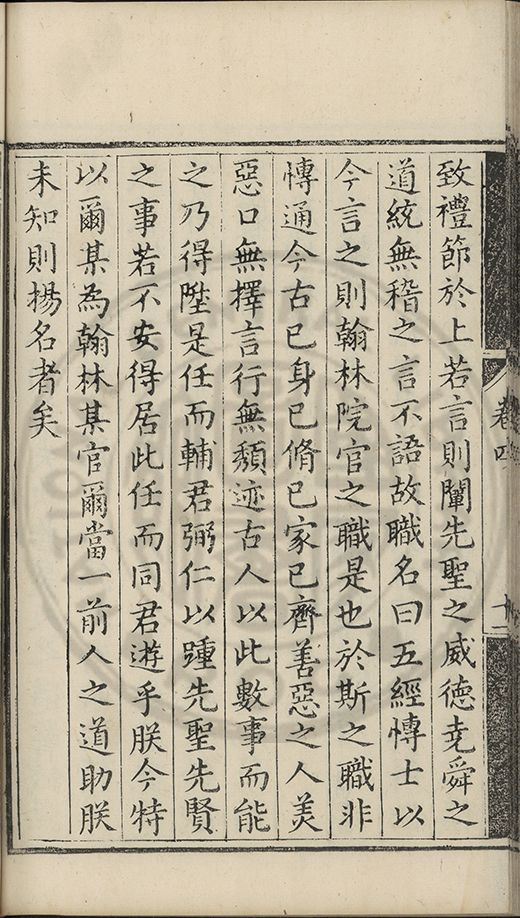 致禮節於上若言則闡先聖之威德堯舜之
道統無稽之言不語故職名曰五經愽士以
今言之則翰林院官之職是也於斯之職非
愽通今古已身已脩已家已齊善惡之人美
惡口無擇言行無頽迹古人以此數事而能
之乃得陞是任而輔君弼仁以踵先聖先賢
之事若不安得居此任而同君遊乎朕今特
以爾某為翰林某官爾當一前人之道助朕
未知則揚名者矣
卷四